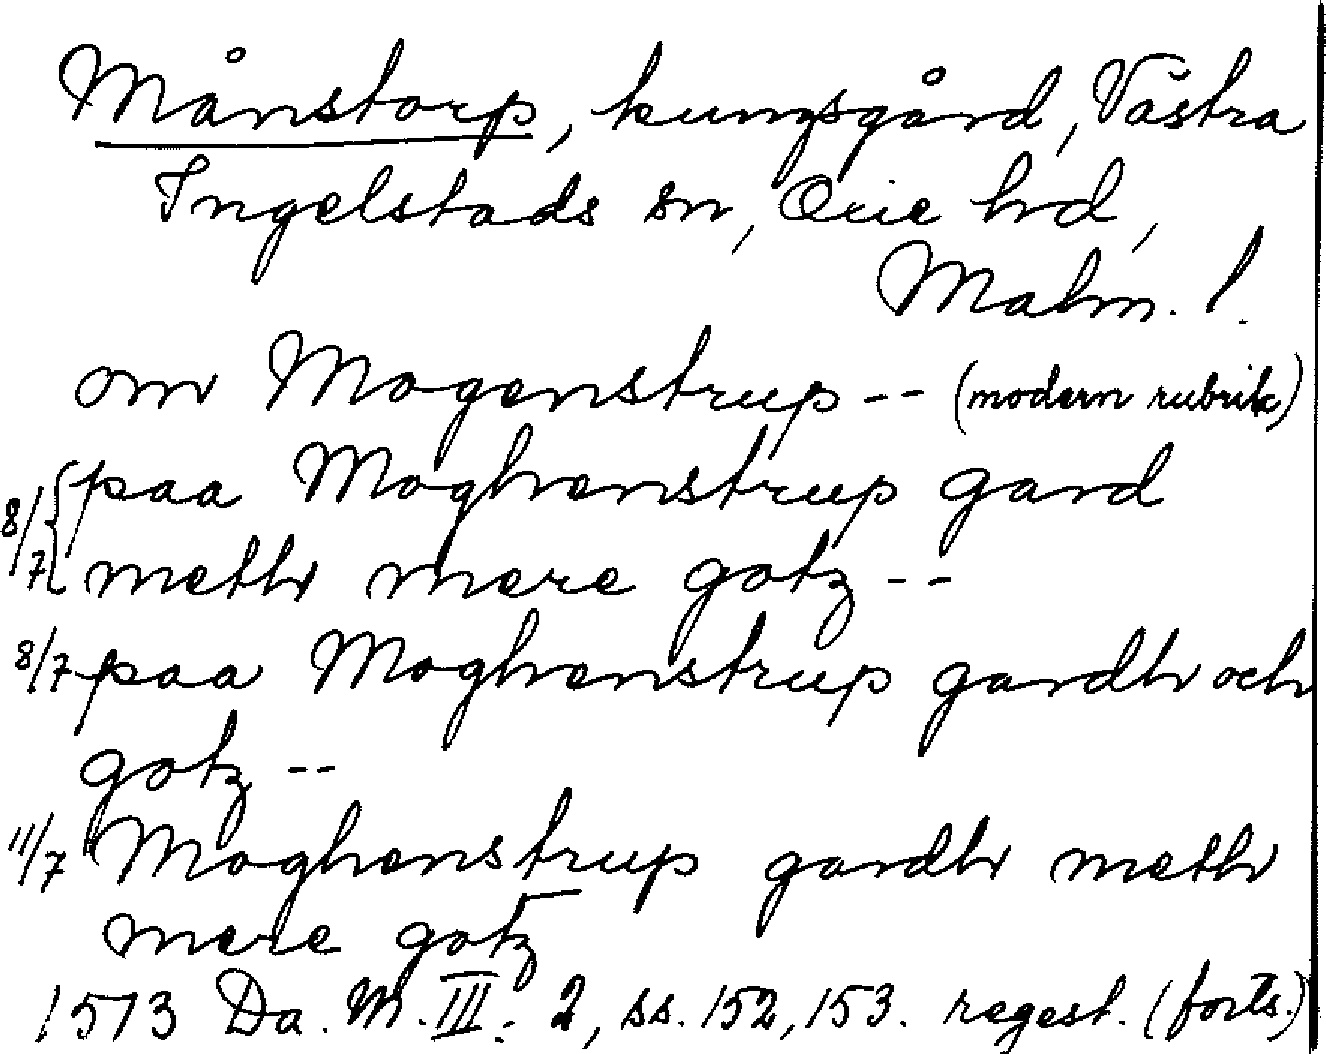 Månstorp, kungsgård, Västra
Ingelstads sn, Oxie hd,
Malm. l.
om Mogenstrup -- (modern rubrik)
8/7 { paa Moghenstrup gard
meth mere gotz --
8/7 paa Moghenstrup gardh och
gotz --
11/7 Moghenstrup gardh meth
mere gotz
1513 Da. M. III. 2, ss. 152, 153. regest. (forts.)